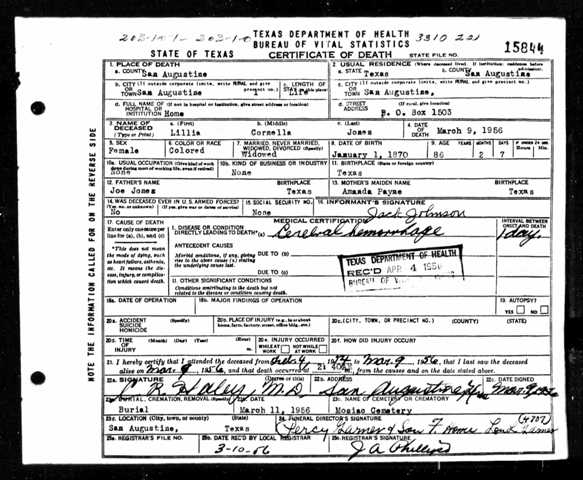 TEXAS DEPARTMENT OF HEALTH
BUREAU OF VITAL STATISTICS
STATE OF TEXAS CERTIFICATE OF DEATH STATE FILE NO. 15844
1. PLACE OF DEATH 2. USUAL RESIDENCE (Where deceased lived. If institution: residence before admission)
a. COUNTY San Augustine a. STATE Texas b. COUNTY San Augustine
b. CITY (If outside corporate limits, write RURAL and give precinct no.) OR TOWN San Augustine c. LENGTH OF STAY (in this place) Life c. CITY (If outside corporate limits, write RURAL and give precinct no.) OR TOWN San Augustine,
d. FULL NAME OF HOSPITAL OR INSTITUTION (If not in hospital or institution, give street address or location) Home d. STREET ADDRESS (If rural, give location) P. O. Box 1503
3. NAME OF DECEASED (Type or Print) a. (First) Lillia b. (Middle) Cornella c. (Last) Jones 4. DATE OF DEATH March 9, 1956
5. SEX Female 6. COLOR OR RACE Colored 7. MARRIED, NEVER MARRIED, WIDOWED, DIVORCED (Specify) Widowed 8. DATE OF BIRTH January 1, 1870 9. AGE YEARS 86 MONTHS 2 DAYS 7 IF UNDER 24 HRS. Hours Min.
10a. USUAL OCCUPATION (Give kind of work done during most of working life, even if retired) None 10b. KIND OF BUSINESS OR INDUSTRY None 11. BIRTHPLACE (State or foreign country) Texas
12. FATHER'S NAME Joe Jones BIRTHPLACE Texas 13. MOTHER'S MAIDEN NAME Amanda Payne BIRTHPLACE Texas
14. WAS DECEASED EVER IN U.S. ARMED FORCES? (Yes, no, or unknown) (If yes, give war or dates of service) No 15. SOCIAL SECURITY NO. None 16. INFORMANT'S SIGNATURE Jack Johnson
17. CAUSE OF DEATH MEDICAL CERTIFICATION INTERVAL BETWEEN ONSET AND DEATH
Enter only one cause per line for (a), (b), and (c)
1. DISEASE OR CONDITION DIRECTLY LEADING TO DEATH* (a) Cerebral hemorrhage 1 day
*This does not mean the mode of dying, such as heart failure, asthenia, etc. It means the disease, injury, or complication which caused death.
ANTECEDENT CAUSES
Morbid conditions, if any, giving rise to the above cause (a) stating the underlying cause last. DUE TO (b)
DUE TO (c)
TEXAS DEPARTMENT OF HEALTH
REC'D APR 4 1956
BUREAU OF
11. OTHER SIGNIFICANT CONDITIONS
Conditions contributing to the death but not related to the disease or condition causing death.
18a. DATE OF OPERATION 18b. MAJOR FINDINGS OF OPERATION 19. AUTOPSY? YES NO
20a. ACCIDENT SUICIDE HOMICIDE (Specify) 20b. PLACE OF INJURY (e.g., in or about home, farm, factory, street, office bldg., etc.) 20c. (CITY, TOWN, OR PRECINCT NO.) (COUNTY) (STATE)
20d. TIME OF INJURY (Month) (Day) (Year) (Hour) 20e. INJURY OCCURRED WHILE AT WORK NOT WHILE AT WORK 20f. HOW DID INJURY OCCUR?
21. I hereby certify that I attended the deceased from to Mar. 9, 1956, that I last saw the deceased
alive on Mar. 9, 1956, and that death occurred at from the causes and on the date stated above.
22a. SIGNATURE Haley, M.D. (Degree or title) 22b. ADDRESS San Augustine 22c. DATE SIGNED
23a. BURIAL, CREMATION, REMOVAL (Specify) Burial 23b. DATE March 11, 1956 23c. NAME OF CEMETERY OR CREMATORY Mosiac Cemetery
23d. LOCATION (City, town, or county) (State) San Augustine, Texas 24. FUNERAL DIRECTOR'S SIGNATURE Percy Garner & Son F. Home
25a. REGISTRAR'S FILE NO. 25b. DATE REC'D BY LOCAL REGISTRAR 3-10-56 25c. REGISTRAR'S SIGNATURE J A Phillips
NOTE THE INFORMATION CALLED FOR ON THE REVERSE SIDE